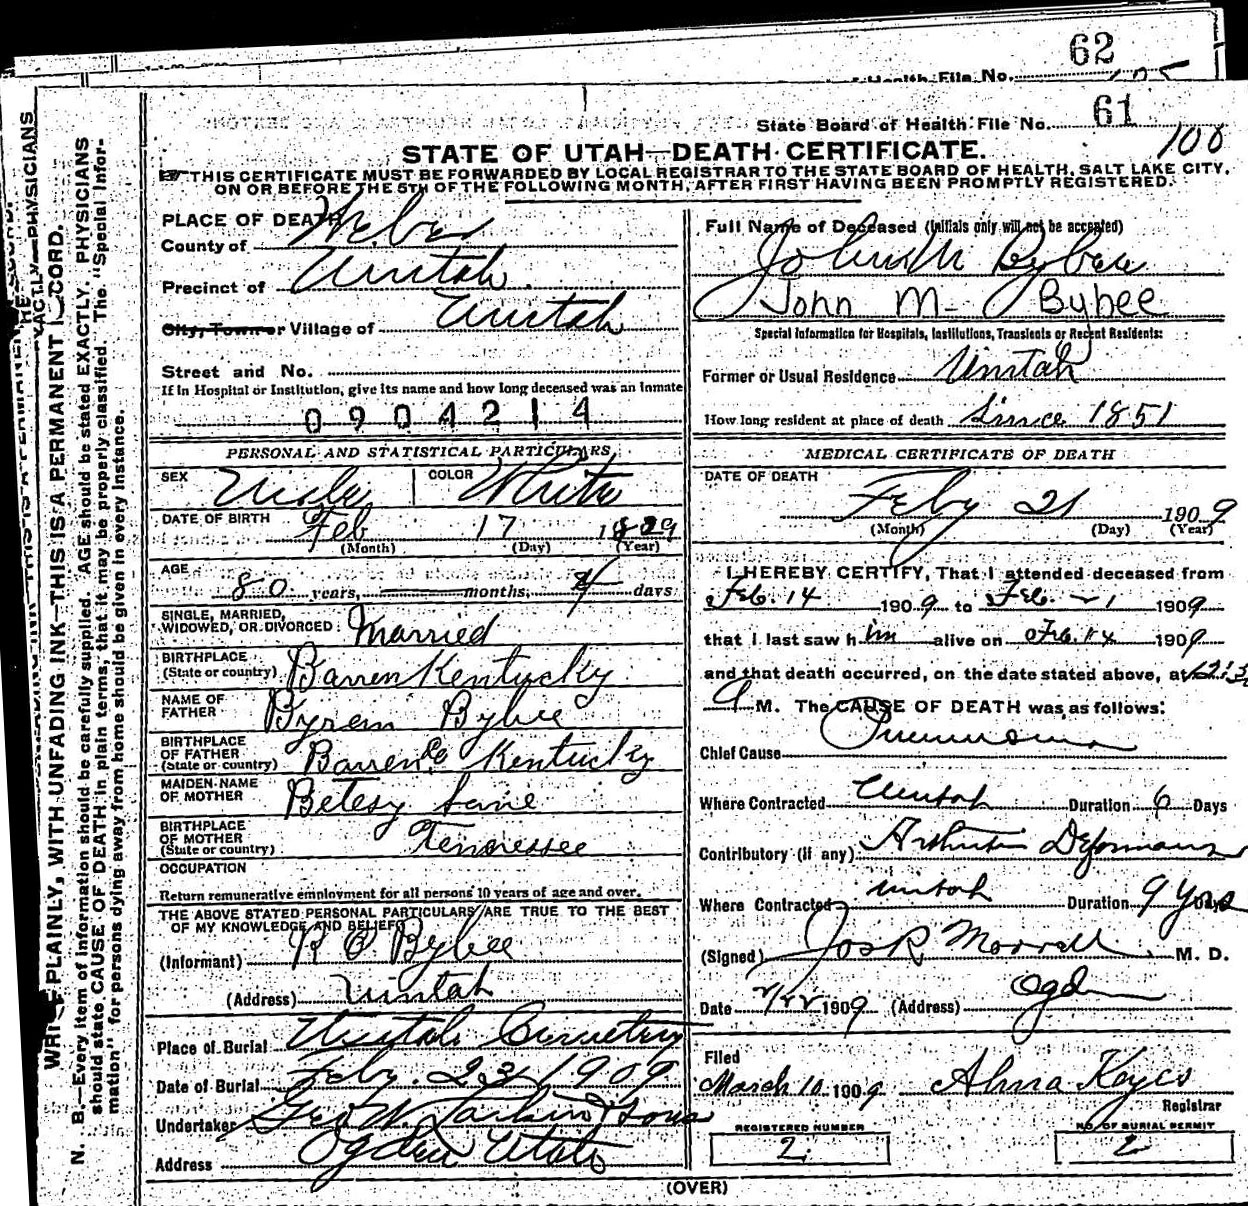 62
Health File No.
State Board of Health File No. 61
100
STATE OF UTAH—DEATH CERTIFICATE.
THIS CERTIFICATE MUST BE FORWARDED BY LOCAL REGISTRAR TO THE STATE BOARD OF HEALTH, SALT LAKE CITY,
ON OR BEFORE THE 5TH OF THE FOLLOWING MONTH, AFTER FIRST HAVING BEEN PROMPTLY REGISTERED.
PLACE OF DEATH
County of Weber
Precinct of Uintah
City, Town or Village of Uintah
Street and No.
If in Hospital or Institution, give its name and how long deceased was an inmate
0904214
PERSONAL AND STATISTICAL PARTICULARS
SEX Male COLOR White
DATE OF BIRTH Feb 17 1829
(Month) (Day) (Year)
AGE
80 years, months, 4 days
SINGLE, MARRIED,
WIDOWED, OR DIVORCED Married
BIRTHPLACE
(State or country) Barren Kentucky
NAME OF
FATHER Byrem Bybee
BIRTHPLACE
OF FATHER
(State or country) Barren Co Kentucky
MAIDEN NAME
OF MOTHER Betesy Lane
BIRTHPLACE
OF MOTHER
(State or country) Tennessee
OCCUPATION
Return remunerative employment for all persons 10 years of age and over.
THE ABOVE STATED PERSONAL PARTICULARS ARE TRUE TO THE BEST
OF MY KNOWLEDGE AND BELIEF
(Informant) Bybee
(Address) Uintah
Place of Burial Uintah Cemetery
Date of Burial Feby. 23 1909
Undertaker Geo W. Larkin & Sons
Address Ogden Utah
Full Name of Deceased (Initials only will not be accepted)
John M Bybee
John M- Bybee
Special Information for Hospitals, Institutions, Transients or Recent Residents:
Former or Usual Residence Uintah
How long resident at place of death Since 1851
MEDICAL CERTIFICATE OF DEATH
DATE OF DEATH
Feby 21 1909
(Month) (Day) (Year)
I HEREBY CERTIFY, That I attended deceased from
Feb. 14 1909 to Feb. 21 1909
that I last saw him alive on Feb. 14 1909
and that death occurred, on the date stated above, at 12:30
A M. The CAUSE OF DEATH was as follows:
Chief Cause Pneumonia
Where Contracted Uintah Duration 6 Days
Contributory (if any) Arthritis Deformans
Where Contracted Uintah Duration 9 Yrs Days
(Signed) Jos R Morrell M. D.
Date 2/22 1909 (Address) Ogden
Filed
March 10 1909 Alma Keyes
Registrar
REGISTERED NUMBER
2
NO. OF BURIAL PERMIT
2
(OVER)
WRITE PLAINLY, WITH UNFADING INK—THIS IS A PERMANENT RECORD.
N. B.—Every item of information should be carefully supplied. AGE should be stated EXACTLY. PHYSICIANS
should state CAUSE OF DEATH in plain terms, that it may be properly classified. The "Special Infor-
mation" for persons dying away from home should be given in every instance.